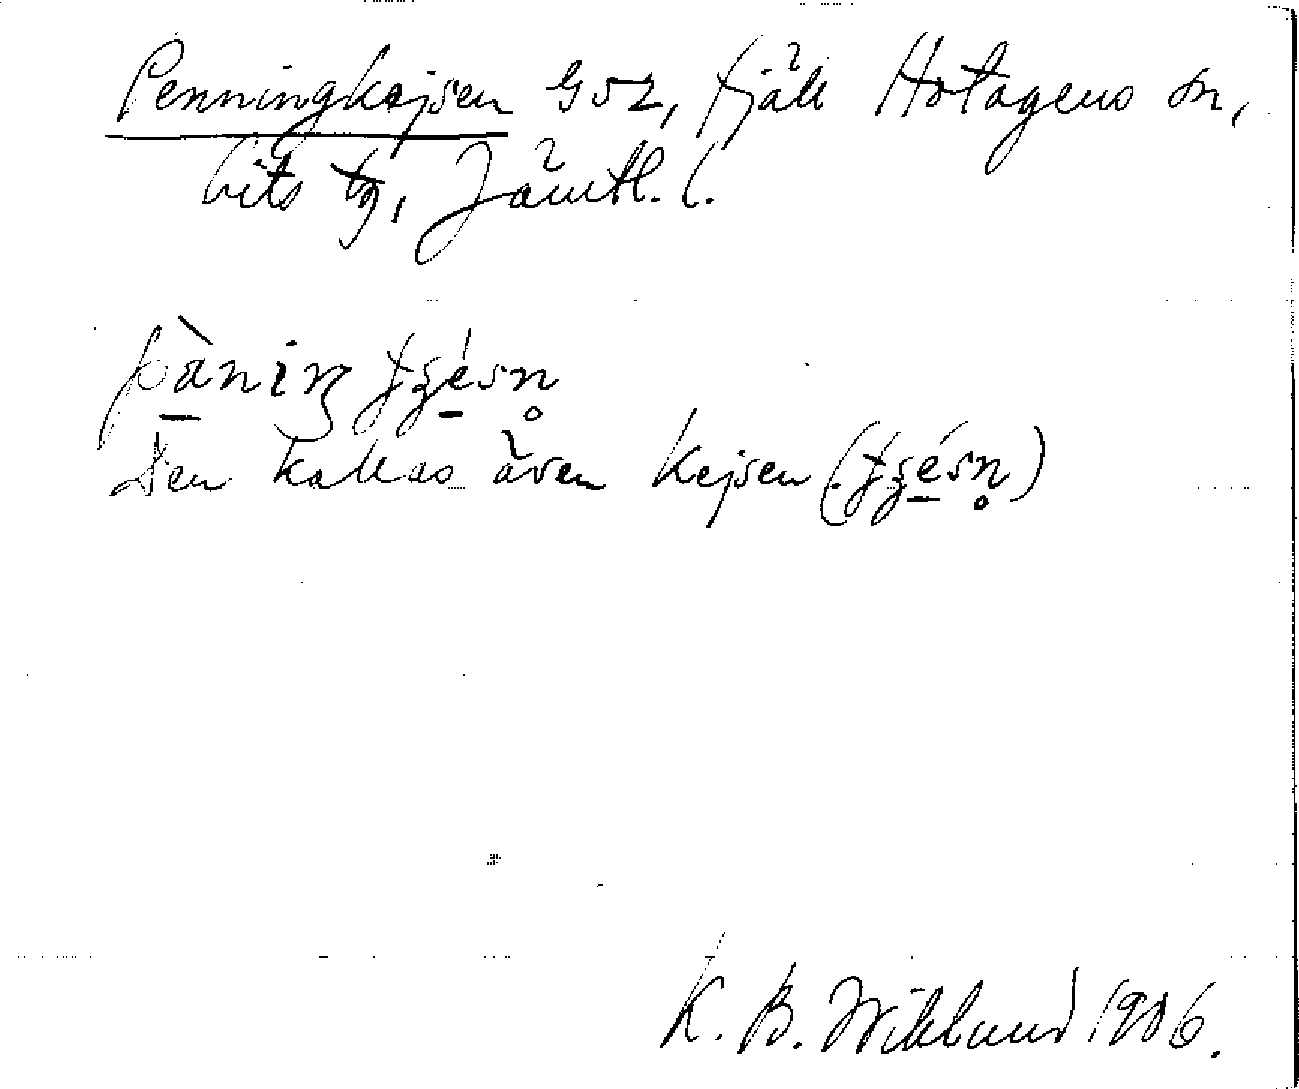 Penningkejsen G52, fjäll Hotagens sn,
Lits tg, Jämtl. l.
pàniŋ tʒésn̥
Den kallas även Kejsen (tʒésn̥)
K. B. Wiklund 1906.